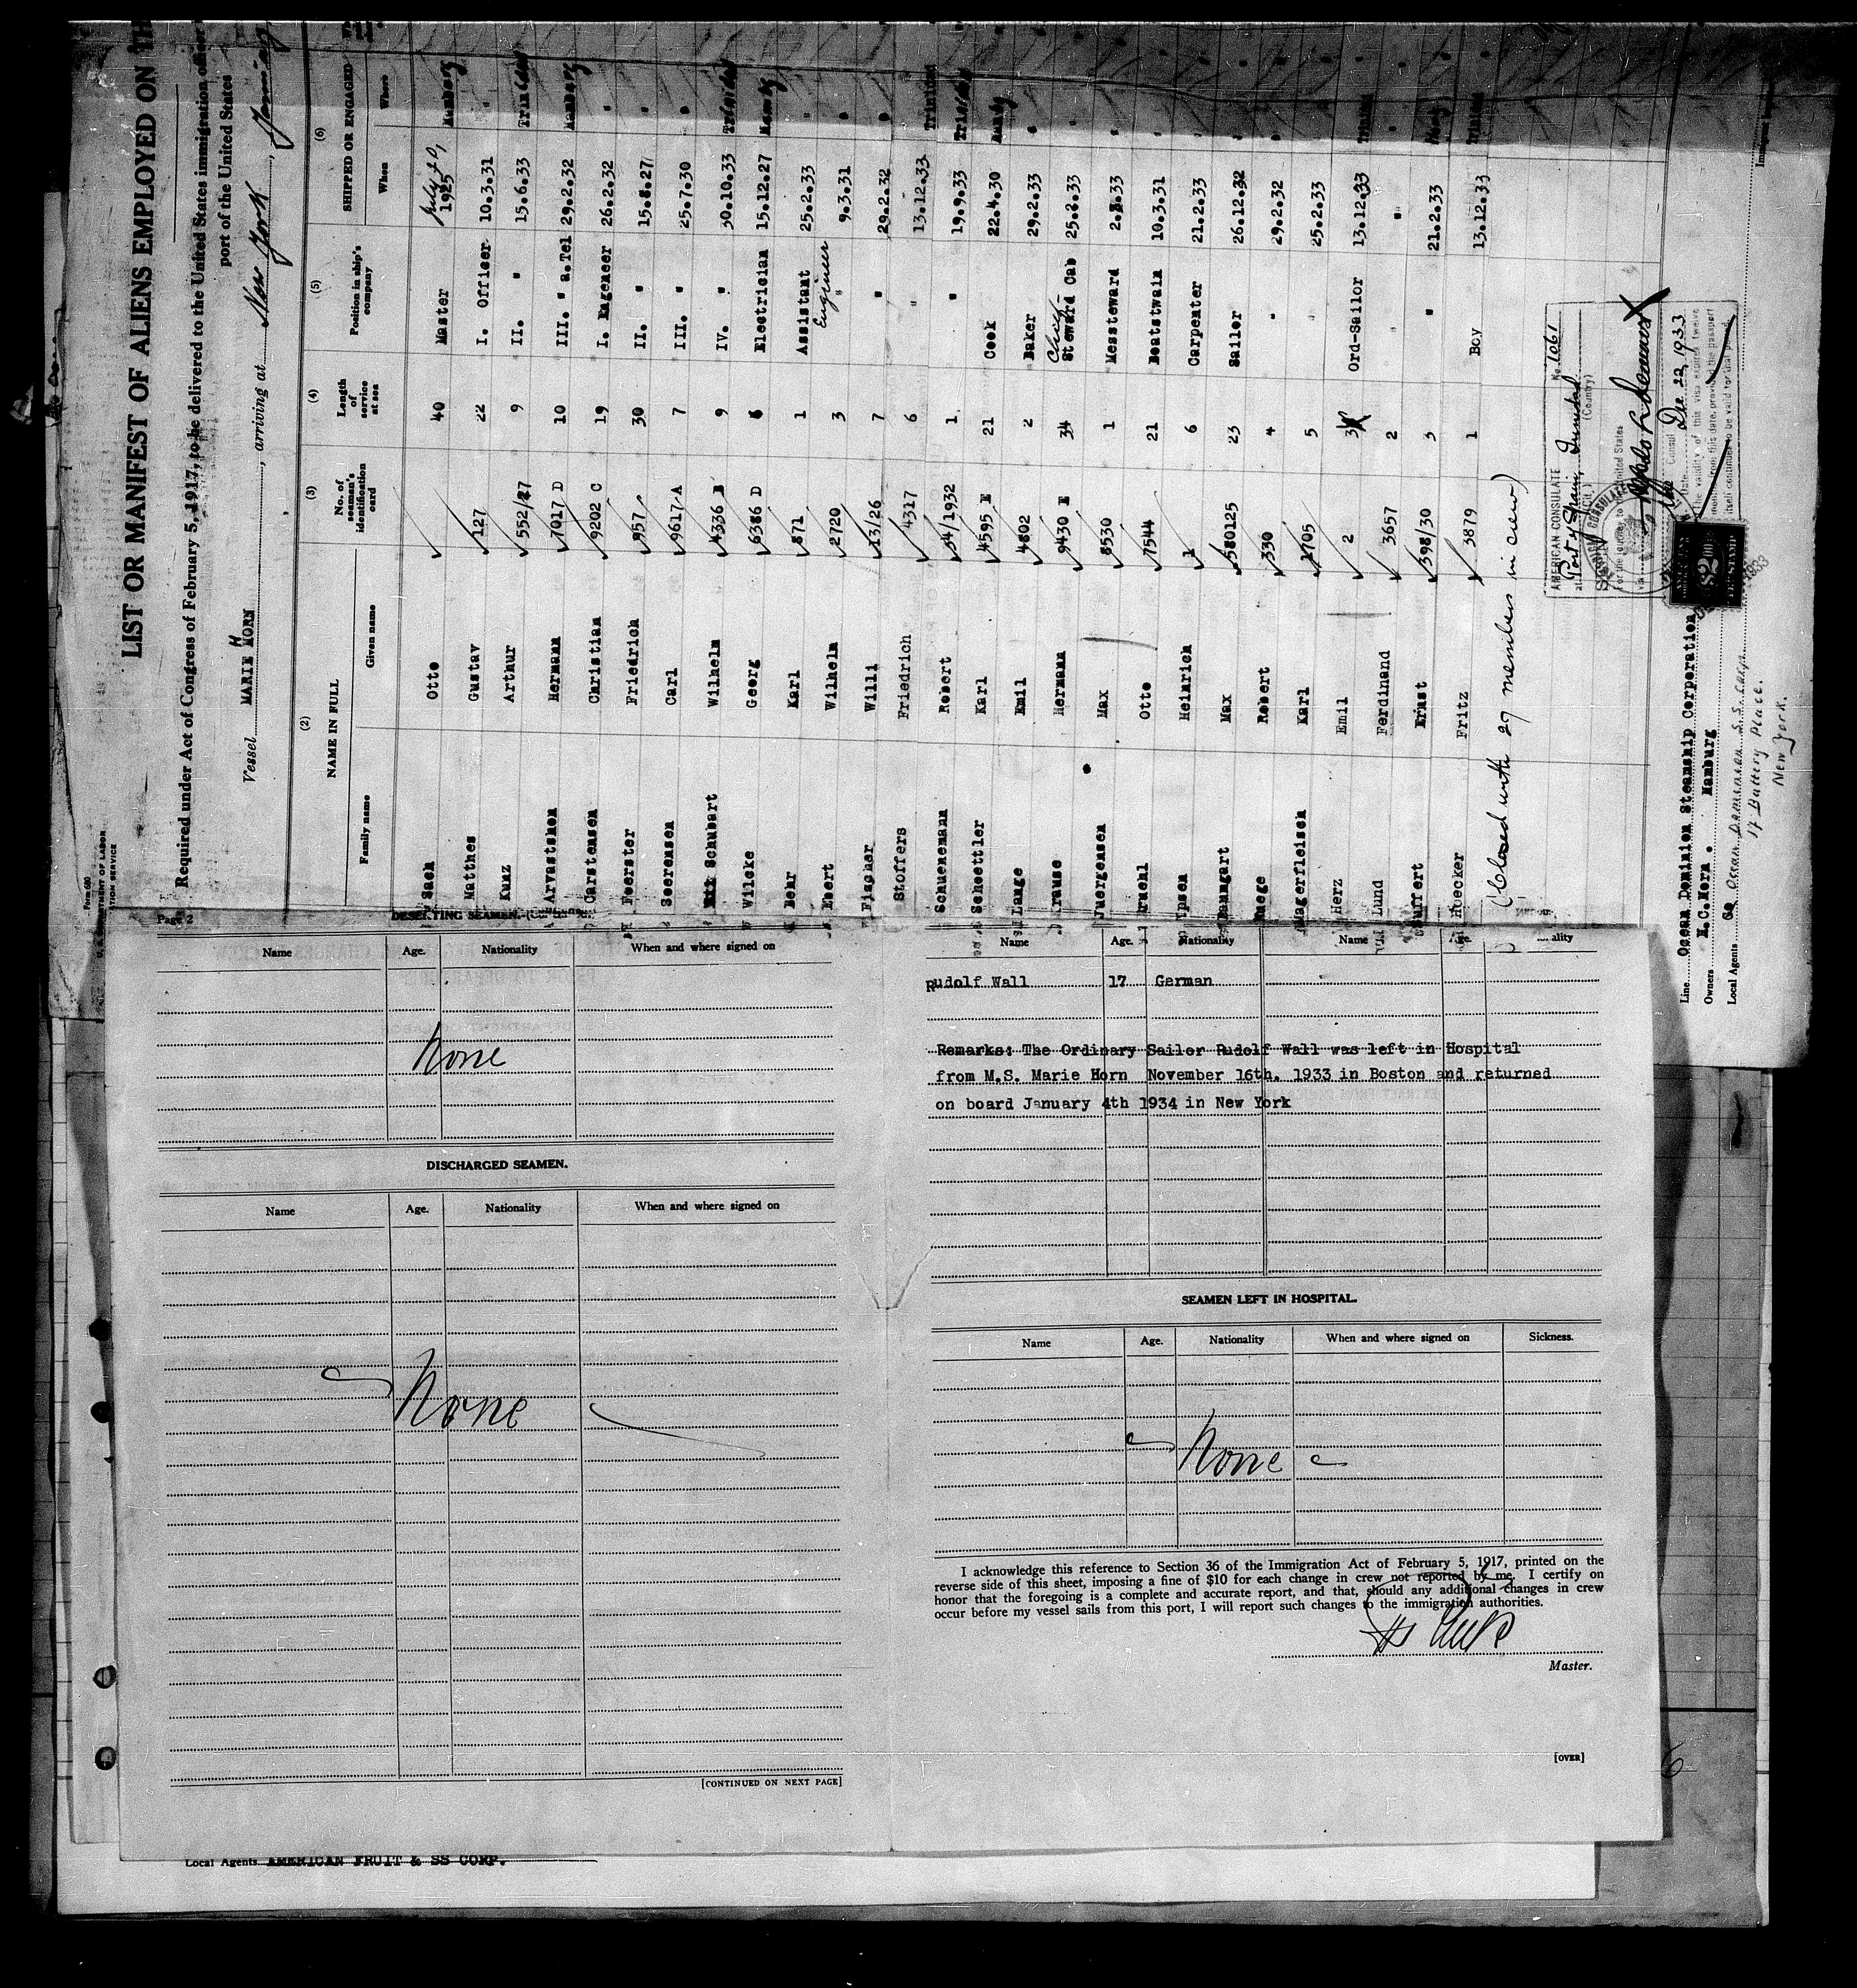 LIST OR MANIFEST OF ALIENS EMPLOYED ON
Required under Act of Congress of February 5, 1917, to be delivered to the United States immigration officer
port of the United States
Vessel MARIE HORN, arriving at New York,
(2) (3) (4) (5) (6)
NAME IN FULL
Family name Given name
No. of seaman's identification card
Length of service at sea
Position in ship's company
SHIPPED OR ENGAGED
When Where
Sach Otto 40 Master July 1925 Hamburg
Matthes Gustav 127 22 I. Officer 10.3.31 "
Kunz Arthur 552/27 9 II. " 15.6.33 Trinidad
Arvastshen Hermann 7017 D 10 III. " a.Tel 29.2.32 Hamburg
Carstensen Christian 9202 C 19 I. Engeneer 26.2.32 "
Foerster Friedrich 957 30 II. " 15.8.27 "
Soerensen Carl 9617 A 7 III. " 25.7.30 "
Schubart Wilhelm 4336 B 9 IV. " 30.10.33 Trinidad
Wilcke Georg 6386 D 6 Electrician 15.12.27
Behr Karl 871 1 Assistant Engineer 25.2.33 "
Ebert Wilhelm 2720 3 " 9.3.31 "
Fischer Willi 13/26 7 " 29.2.32 "
Stoffers Friedrich 4317 6 " 13.12.33 Trinidad
Schuenemann Robert 54/1932 1 " 19.9.33 Trinidad
Schoettler Karl 4595 E 21 Cook 22.4.30
Lange Emil 4802 2 Baker 29.2.33 "
Krause Hermann 9430 E 34 Chief Steward Cab 25.2.33 "
Juergensen Max 8530 1 Messteward 2.8.33 "
Pruehl Otto 7544 21 Boatstwain 10.3.31 "
Ipsen Heinrich 1 6 Carpenter 21.2.33 "
Baumgart Max 580125 23 Sailor 26.12.32 "
Ruege Robert 330 4 " 29.2.32 "
Magerfleisch Karl 1705 5 " 25.2.33
Herz Emil 2 3 Ord-Sailor 13.12.33 Trinidad
Lund Ferdinand 3657 2 " " "
Suffert Ernst 398/30 3 " 21.2.33
Hoecker Fritz 3879 1 Boy 13.12.33 Trinidad
(Closed with 27 members in crew)
AMERICAN CONSULATE No. 1061
at Port of Spain, Trinidad
(City) (Country)
Dec 22, 1933
The validity of this visa expires twelve
months from this date, provided the passport
itself continues to be valid for that period.
$2.00
FEE STAMP
Line Ocean Dominion Steamship Corporation
Owners H.C.Horn. Hamburg
Local Agents Ocean Dominion S.S. Corp.
17 Battery Place.
New York.
Page 2
DESERTING SEAMEN.
Name Age. Nationality When and where signed on
None
DISCHARGED SEAMEN.
Name Age. Nationality When and where signed on
None
[CONTINUED ON NEXT PAGE]
Name Age. Nationality Name Age. Nationality
Rudolf Wall 17 German
Remarks: The Ordinary Sailor Rudolf Wall was left in Hospital
from M.S. Marie Horn November 16th. 1933 in Boston and returned
on board January 4th 1934 in New York
SEAMEN LEFT IN HOSPITAL.
Name Age. Nationality When and where signed on Sickness.
None
I acknowledge this reference to Section 36 of the Immigration Act of February 5, 1917, printed on the
reverse side of this sheet, imposing a fine of $10 for each change in crew not reported by me. I certify on
honor that the foregoing is a complete and accurate report, and that, should any additional changes in crew
occur before my vessel sails from this port, I will report such changes to the immigration authorities.
Master.
[OVER]
Local Agents AMERICAN FRUIT & SS CORP.